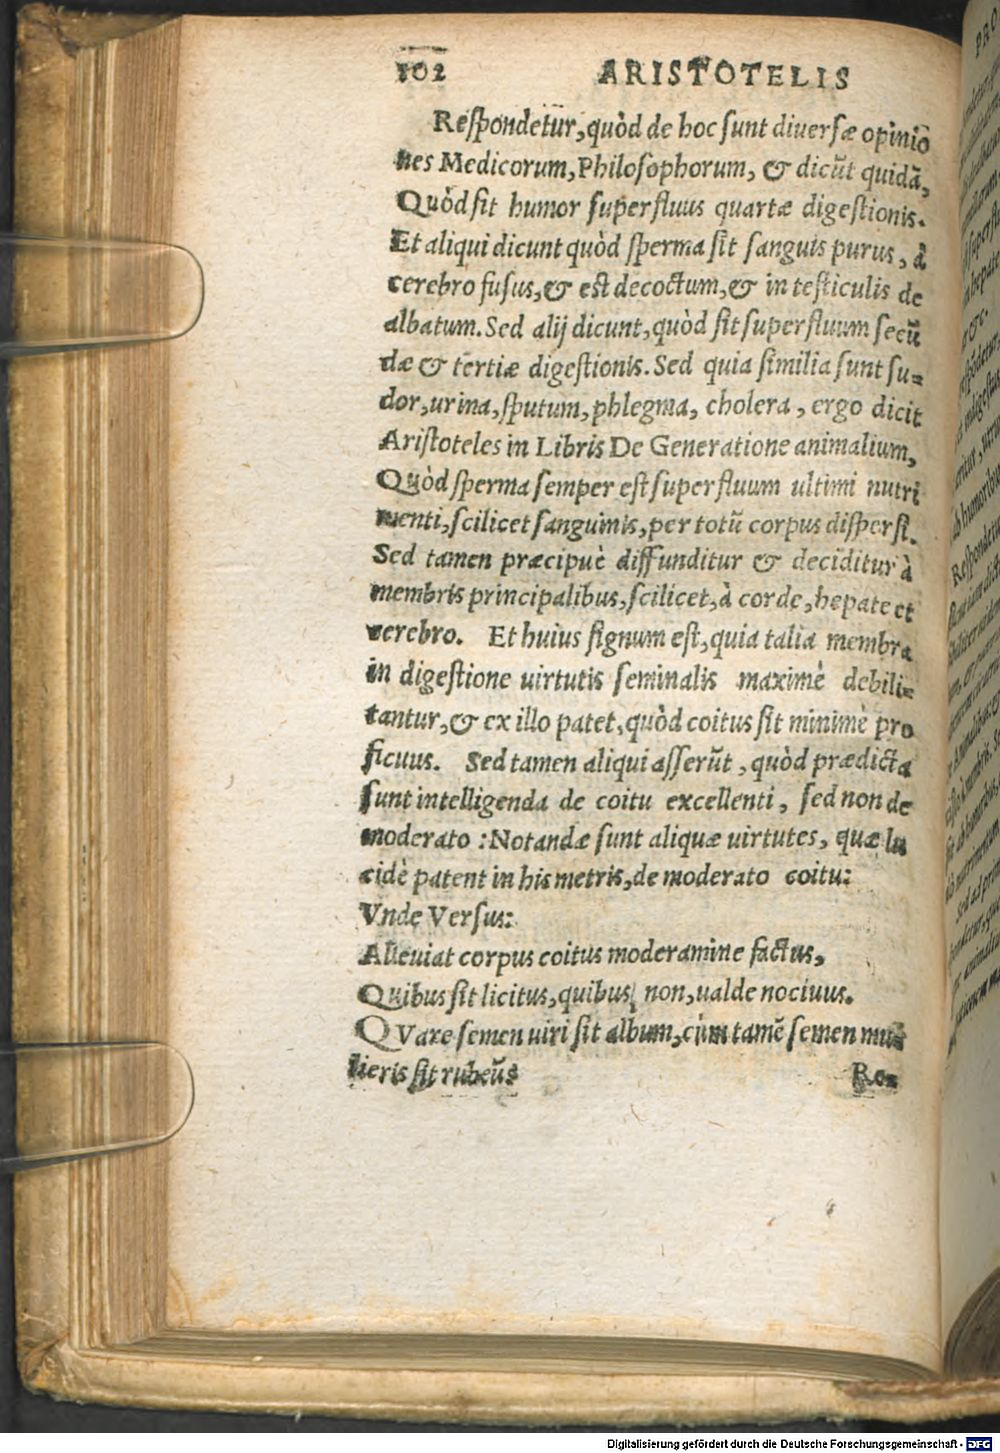 102 ARISTOTELIS
Respondetur, quòd de hoc sunt diuersæ opiniō
nes Medicorum, Philosophorum, & dicūt quidā,
Quòd sit humor superfluus quartæ digestionis.
Et aliqui dicunt quòd sperma sit sanguis purus, à
cerebro fusus, & est decoctum, & in testiculis de
albatum. Sed alij dicunt, quòd sit superfluum secū
dæ & tertiæ digestionis. Sed quia similia sunt su-
dor, urina, sputum, phlegma, cholera, ergo dicit
Aristoteles in Libris De Generatione animalium,
Quòd sperma semper est superfluum ultimi nutri
menti, scilicet sanguinis, per totū corpus dispersi.
Sed tamen præcipuè diffunditur & deciditur à
membris principalibus, scilicet, à corde, hepate et
cerebro. Et huius signum est, quia talia membra
in digestione uirtutis seminalis maximè debili-
tantur, & ex illo patet, quòd coitus sit minimè pro
ficuus. Sed tamen aliqui asserūt, quòd prædicta
sunt intelligenda de coitu excellenti, sed non de
moderato: Notandæ sunt aliquæ uirtutes, quæ lu
cidè patent in his metris, de moderato coitu:
Vnde Versus:
Alleuiat corpus coitus moderamine factus,
Quibus sit licitus, quibus non, ualde nociuus.
QVare semen uiri sit album, cùm tamē semen mu-
lieris sit rubeū?
Re-
Digitalisierung gefördert durch die Deutsche Forschungsgemeinschaft - DFG